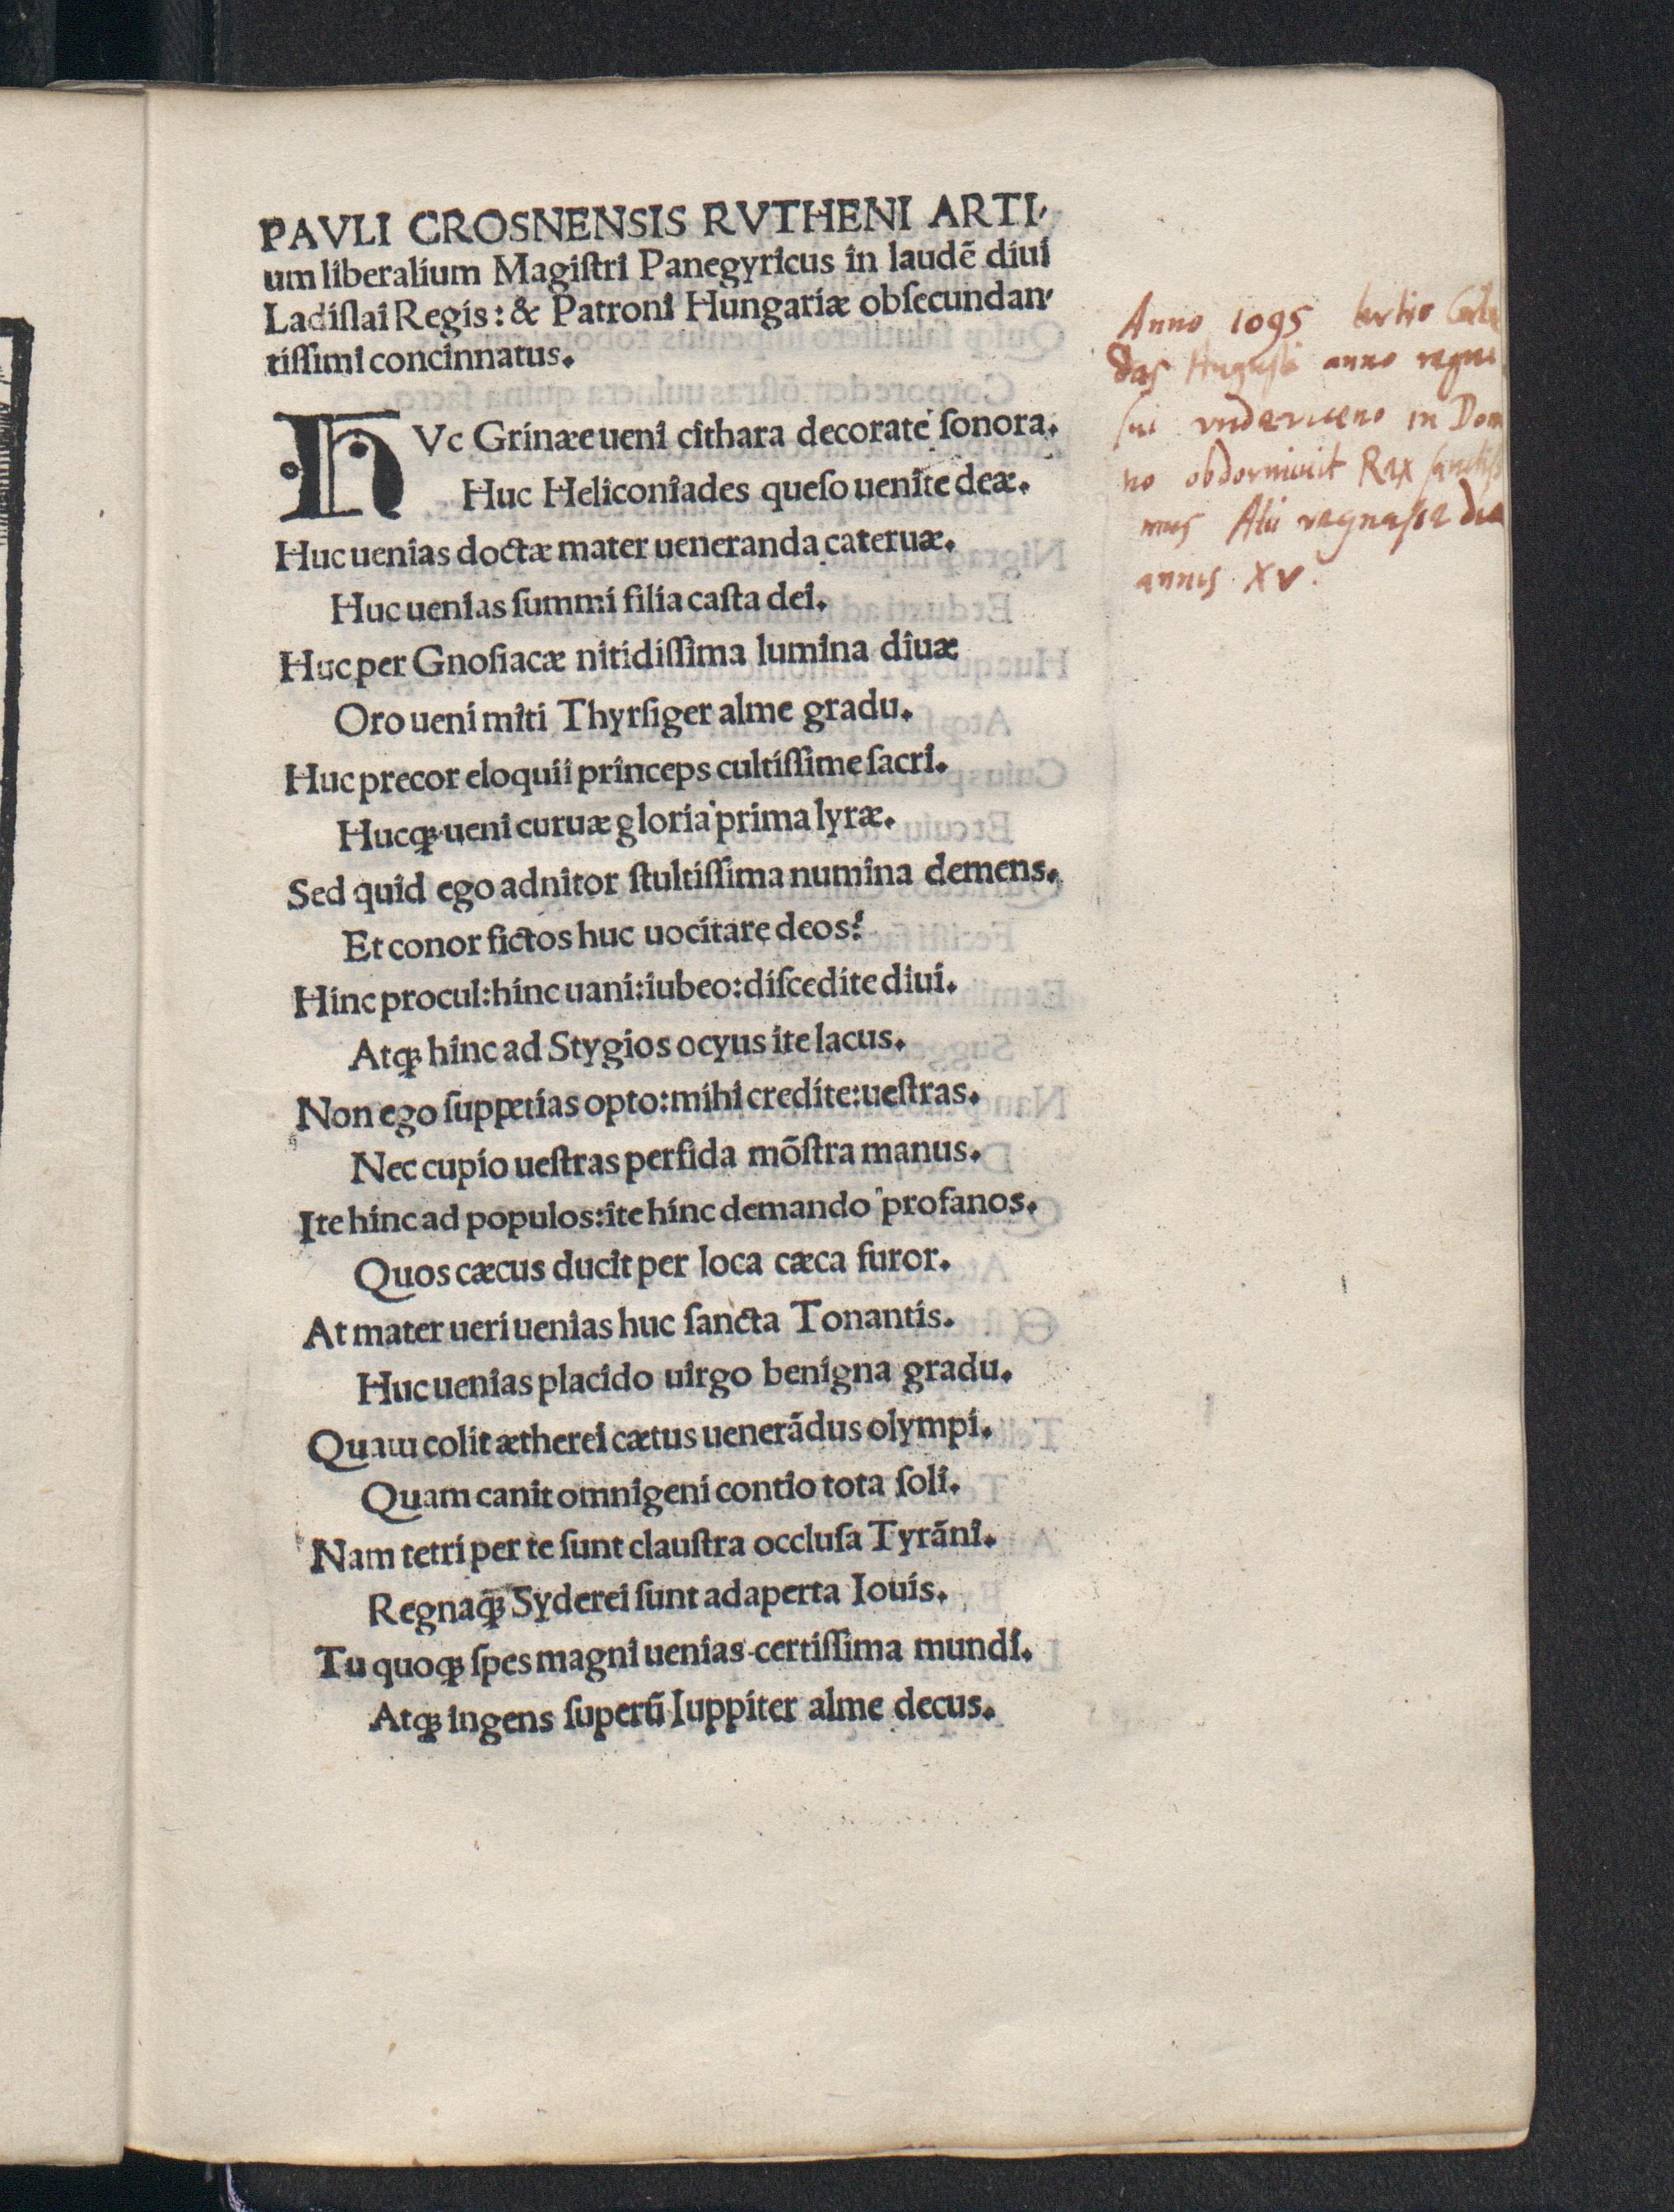 PAVLI CROSNENSIS RVTHENI ARTI-
um liberalium Magiſtri Panegyricus in laudẽ diui
Ladiſlai Regis: & Patroni Hungariæ obſecundan-
tiſſimi concinnatus.
HVc Grinæe ueni cithara decorate ſonora.
Huc Heliconiades queſo uenite deæ.
Huc uenias doctæ mater ueneranda cateruæ.
Huc uenias ſummi filia caſta dei.
Huc per Gnoſiacæ nitidiſſima lumina diuæ
Oro ueni miti Thyrſiger alme gradu.
Huc precor eloquii princeps cultiſſime ſacri.
Hucqꝫ ueni curuæ gloria prima lyræ.
Sed quid ego adnitor ſtultiſſima numina demens.
Et conor fictos huc uocitare deos?
Hinc procul: hinc uani: iubeo: diſcedite diui.
Atqꝫ hinc ad Stygios ocyus ite lacus.
Non ego ſuppetias opto: mihi credite: ueſtras.
Nec cupio ueſtras perfida mõſtra manus.
Ite hinc ad populos: ite hinc demando profanos.
Quos cæcus ducit per loca cæca furor.
At mater ueri uenias huc ſancta Tonantis.
Huc uenias placido uirgo benigna gradu.
Quam colit ætherei cætus uenerãdus olympi.
Quam canit omnigeni contio tota ſoli.
Nam tetri per te ſunt clauſtra occluſa Tyrãni.
Regnaqꝫ Syderei ſunt adaperta Iouis.
Tu quoqꝫ ſpes magni uenias certiſſima mundi.
Atqꝫ ingens ſuperũ Iuppiter alme decus.
Anno 1095 tertio Cale
das Augusti anno regni
sui in Dom
no obdormiuit Rex sanctiss
mus Alii regnasse
annis XV.